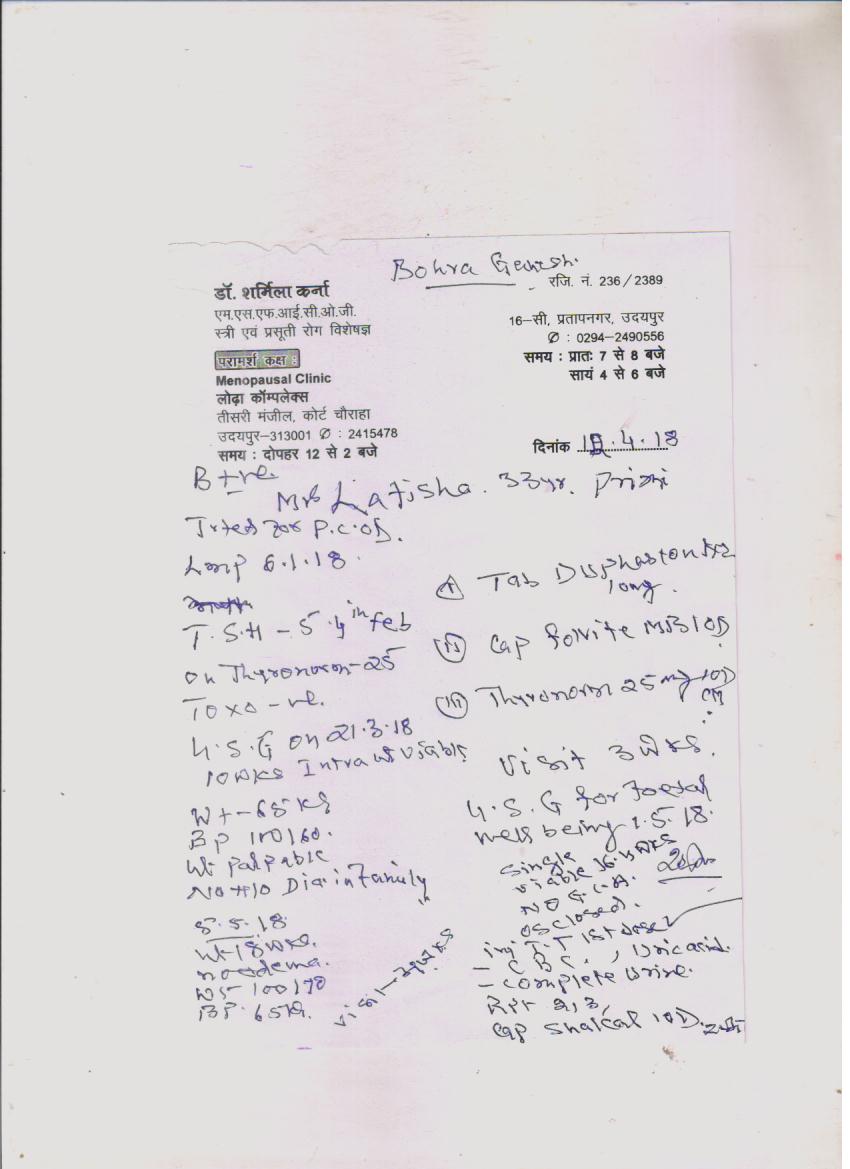 Bohra Ganesh.
डॉ. शर्मिला कर्ना
एम.एस.एफ.आई.सी.ओ.जी.
स्त्री एवं प्रसूती रोग विशेषज्ञ
परामर्श कक्ष :
Menopausal Clinic
लोढ़ा कॉम्पलेक्स
तीसरी मंजील, कोर्ट चौराहा
उदयपुर–313001 ✆ : 2415478
समय : दोपहर 12 से 2 बजे
रजि. नं. 236/2389
16–सी, प्रतापनगर, उदयपुर
✆ : 0294–2490556
समय : प्रातः 7 से 8 बजे
सायं 4 से 6 बजे
दिनांक .4.18
B +ve.
Mrs Latisha. 33yr. Primi
Trted for P.C.OD.
Lmp 6.1.18.
T.S.H – 5.4 in feb
on Thyronorm–25
Toxo –ve.
U.S.G on 21.3.18
10 wks Intra ut viable
Wt – 65 KG
BP 100/60.
Ut palpable
No H/O Dia in Family
(I) Tab Duphaston
10mg.
(II) Cap Folvite MB 1 OD
(III) Thyronorm 25 mg 1 OD
Visit 3 wks.
U.S.G for Foetal
well being 1.5.18.
Single
viable 16 wks
NO G.C.A.
OS closed.
5.5.18.
Ut–18 wks.
no edema.
100/70
BP. 65
inj T.T 1st dose
– C.B.C., Uric acid.
– Complete urine.
Rpt 2, 3,
Cap Shalcal 1 OD.